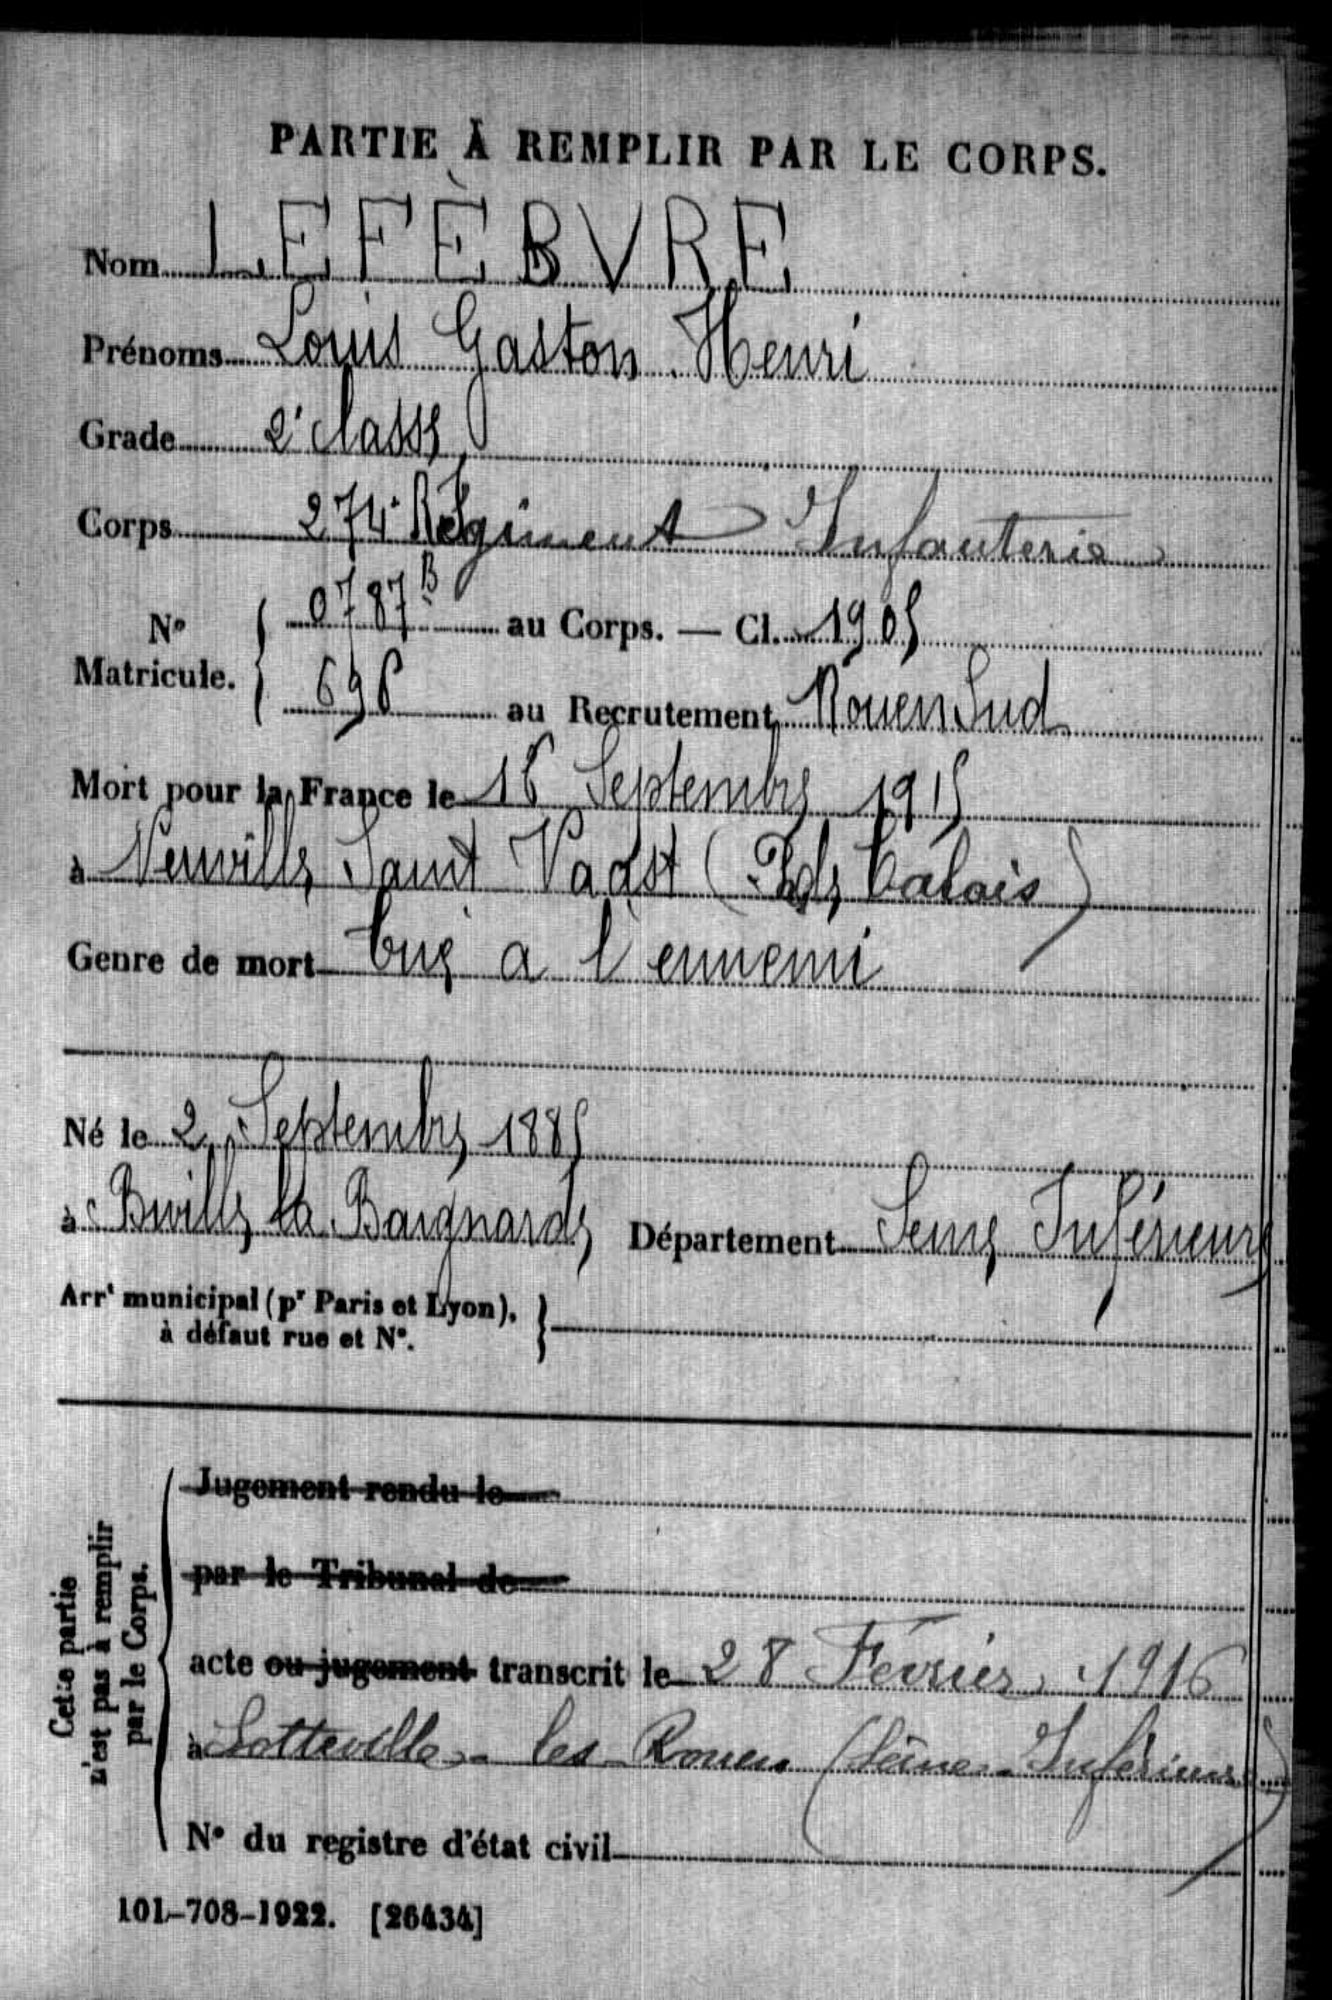 PARTIE À REMPLIR PAR LE CORPS.
Nom LEFÈBVRE
Prénoms Louis Gaston Henri
Grade 2e classe
Corps 274e Régiment Infanterie
No Matricule. { 0787 B au Corps. — Cl. 1905
696 au Recrutement Rouen Sud
Mort pour la France le 16 Septembre 1915
à Neuville Saint Vaast (P. de Calais)
Genre de mort Tué a l'ennemi
Né le 2 Septembre 1885
à Biville la Baignarde Département Seine Inférieure
Arrt municipal (pr Paris et Lyon), }
à défaut rue et No.
Cette partie
n'est pas à remplir
par le Corps.
Jugement rendu le
par le Tribunal de
acte ou jugement transcrit le 28 Février 1916
à Sotteville-les-Rouen (Seine-Inférieure)
No du registre d'état civil
101-708-1922. [26434]